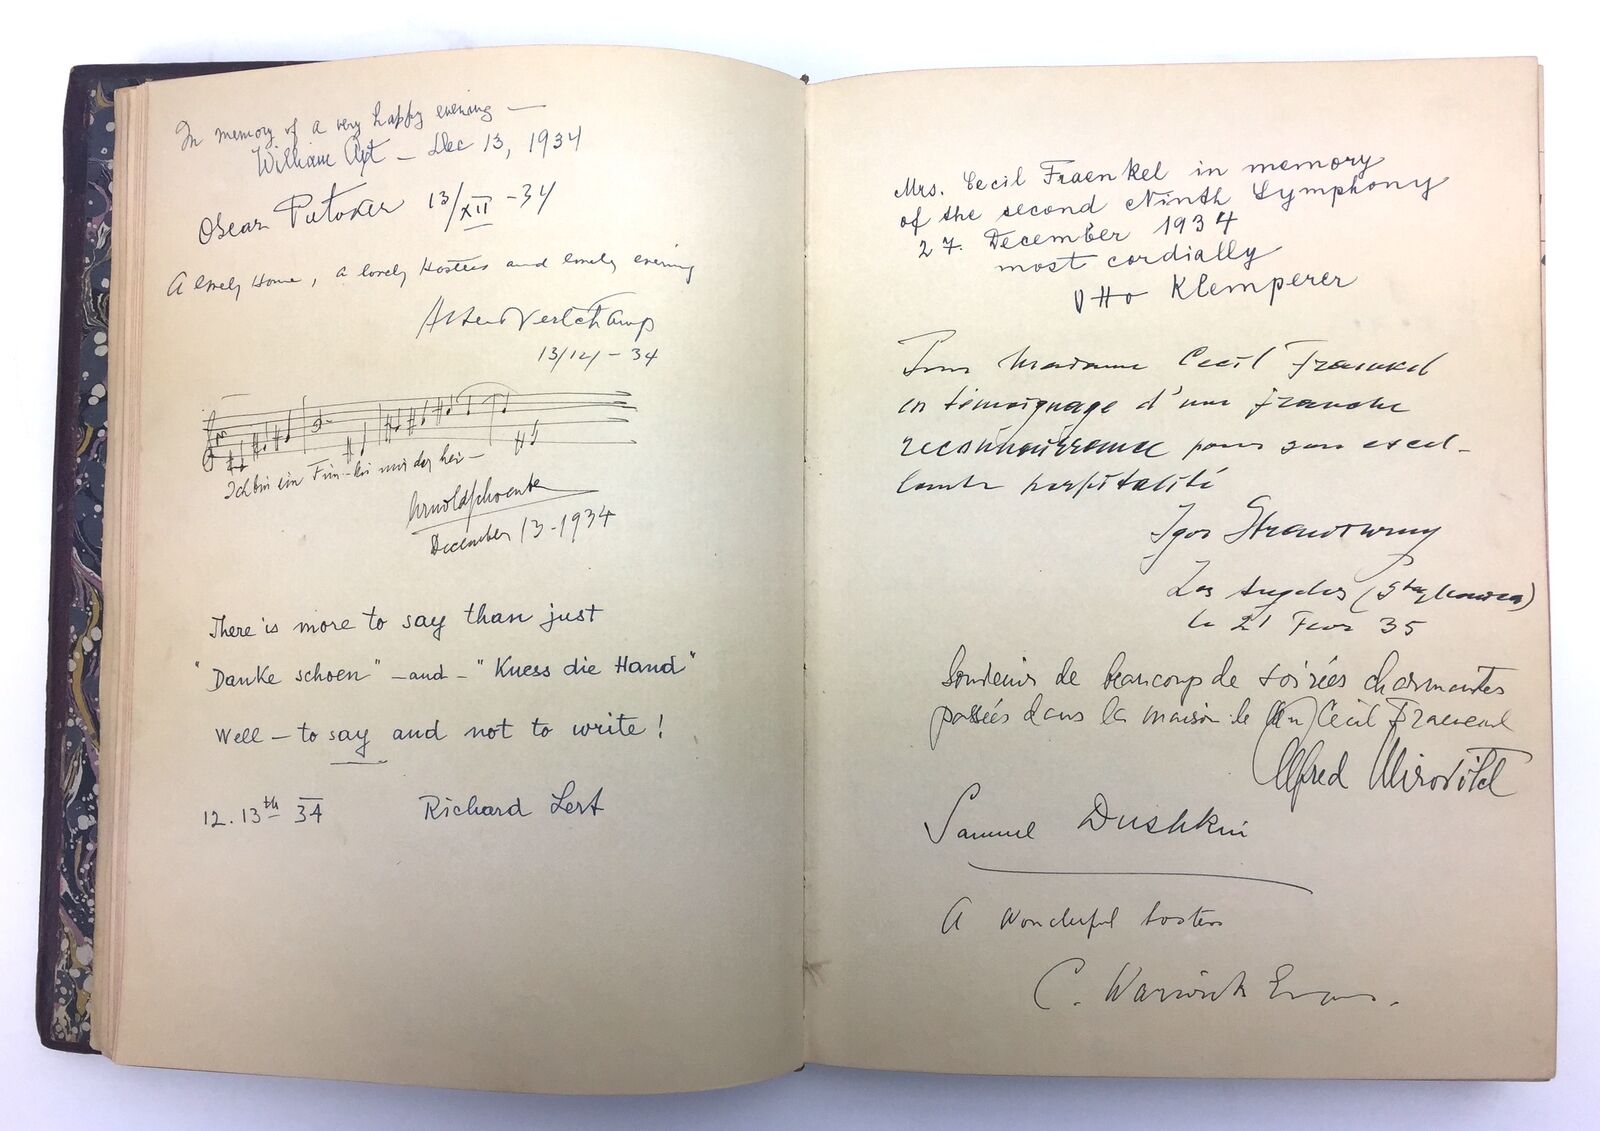 In memory of a very happy evening —
William Axt — Dec 13, 1934
Oscar 13/XII -34
A lovely Home, a lovely Hostess and lovely evening
13/12/ - 34
Ich bin ein Fun--ke nur des hei-
Arnold Schoenberg
December 13 - 1934
There is more to say than just
"Danke schoen" — and — "Kuess die Hand"
Well — to say and not to write!
12. 13th 34 Richard Lert
Mrs. Cecil Fraenkel in memory
of the second Ninth Symphony
27. December 1934
most cordially
Otto Klemperer
Pour Madame Cecil Fraenkel
en témoignage d'une franche
reconnaissance pour son excel-
lente hospitalité
Igor Strawinsky
Los Angelos
le 21 Fevr 35
Souvenir de beaucoup de soirées charmantes
passées dans la maison de Cecil Fraenkel
Alfred Mirovitch
Samuel Dushkin
A wonderful hostess
C. Warwick Evans.